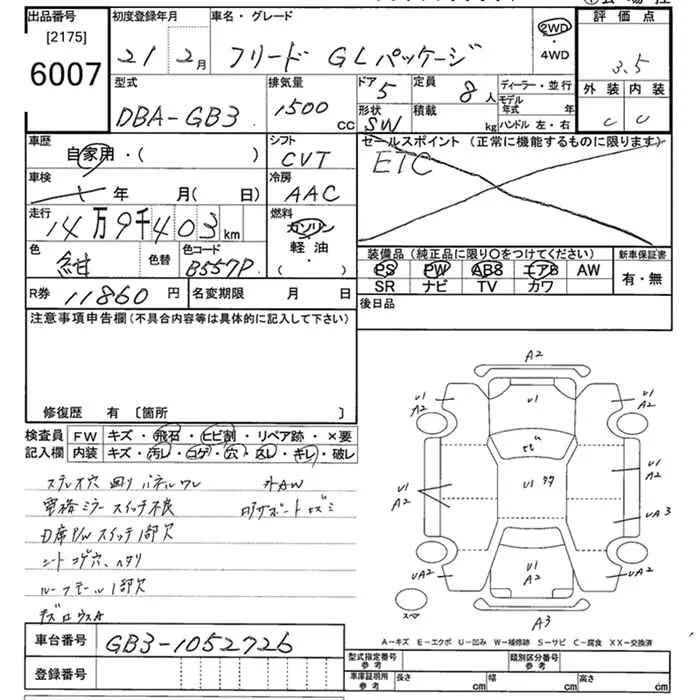 出品番号 初度登録年月 車名・グレード
[2175]
6007
21 2月 フリード GLパッケージ
2WD
・
4WD
評価点
3.5
外装 内装
C C
型式 排気量 ドア 定員 ディーラー・並行
DBA-GB3 1500 cc
5 8人
モデル年式 年
形状 積載
SW kg ハンドル 左・右
車歴 シフト セールスポイント (正常に機能するものに限ります)
自家用・( ) CVT ETC
車検 冷房
年 月(日) AAC
走行 燃料
14万9千403km
ガソリン
軽油
( ・ )
色 色替 色コード
紺 B557P
装備品 (純正品に限り〇をつけてください) 新車保証書
PS PW ABS エアB AW 有・無
SR ナビ TV カワ
R券 11860円 名変期限 月 日
後日品
注意事項申告欄 (不具合内容等は具体的に記入して下さい)
修復歴 有 [箇所 ]
検査員 FW キズ・飛石・ヒビ割・リペア跡・×要
記入欄 内装 キズ・汚レ・コゲ・穴・スレ・キレ・破レ
ステレオ穴 回りパネルワレ 社外AW
電格ミラースイッチ不良
D席P/Wスイッチ1部欠
シートコゲ穴、ヘタリ
ルーフモール1部欠
A2
U1 U1 U1
A2 A2
U1
A2
U1
A2
U1
UA3
UA2 U1 UA2
A2
スペア
A3
A-キズ E-エクボ U-凹み W-補修跡 S-サビ C-腐食 XX-交換済
車台番号 GB3-1052726
登録番号
型式指定番号 参考 類別区分番号 参考
車庫証明用 参考 長さ cm 幅 cm 高さ cm